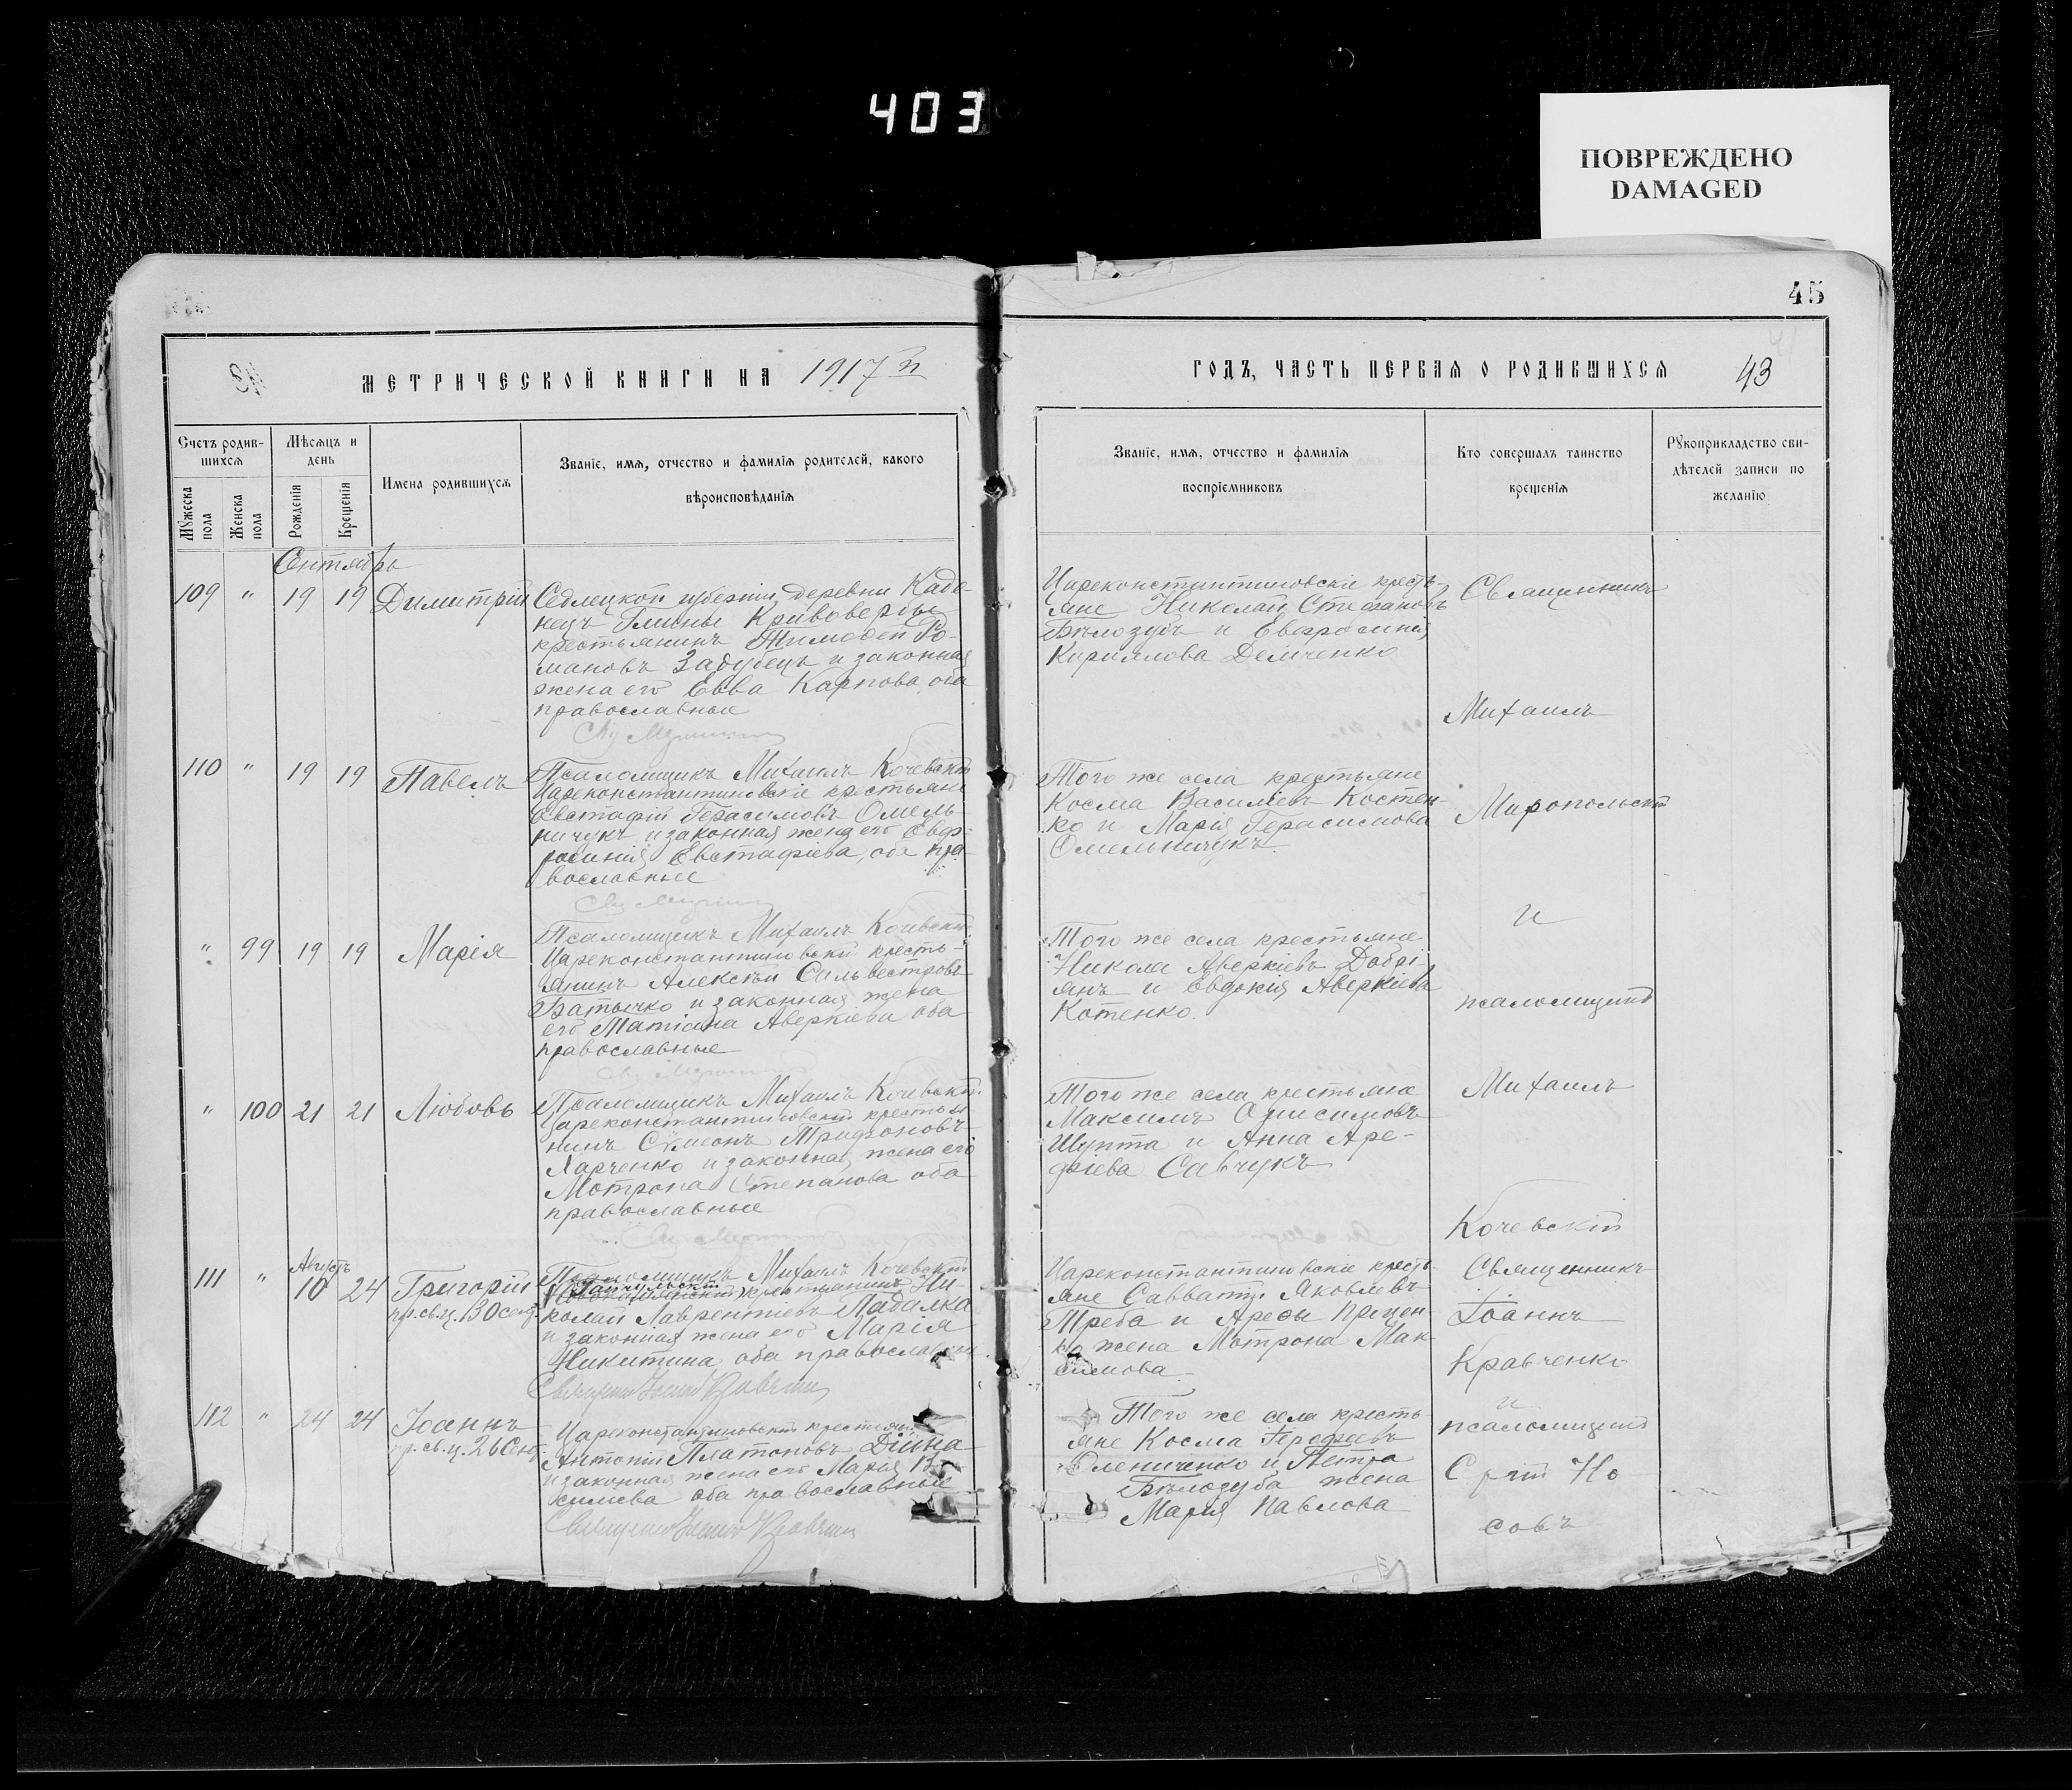 403
ПОВРЕЖДЕНО
DAMAGED
45
МЕТРИЧЕСКОЙ КНИГИ НА 1917
ГОДЪ, ЧАСТЬ ПЕРВАЯ О РОДИВШИХСЯ
43
Счетъ родив-
шихся
Мужеска
пола
Женска
пола
Мѣсяцъ и
день
Рожденія
Крещенія
Имена родившихся
Званіе, имя, отчество и фамилія родителей, какого
вѣроисповѣданія
Званіе, имя, отчество и фамилія
воспріемниковъ
Кто совершалъ таинство
крещенія
Рукоприкладство сви-
дѣтелей записи по
желанію
Сентябрь
109 " 19 19 Димитрій
Седлецкой губерніи деревни Каде-
нецъ Глины Кривовербы
крестьянинъ Тимофей Ро-
мановъ Задубецъ и законная
жена его Евва Карпова, оба
православные
Цареконстантиновскіе кресть-
яне Николай Стефановъ
Бѣлозубъ и Евфросинія
Кириллова Демченко
Священникъ
Михаилъ
110 " 19 19 Павелъ
Псаломщикъ Михаилъ Кочевскій
Цареконстантиновскіе крестьяне
Евстафій Герасимовъ Омель-
ничукъ и законная жена его Евф-
росинія Евстафіева, оба пра-
вославные
Того же села крестьяне
Косма Василіевъ Костен-
ко и Марія Герасимова
Омельничукъ
Миропольскій
и
" 99 19 19 Марія
Псаломщикъ Михаилъ Кочевскій
Цареконстантиновскій кресть-
янинъ Алексѣй Сильвестровъ
Батычко и законная жена
его Татіана Аверкіева оба
православные
Того же села крестьяне
Никола Аверкіевъ Добрі-
янъ и Евдокія Аверкіева
Котенко.
псаломщикъ
" 100 21 21 Любовь
Псаломщикъ Михаилъ Кочевскій
Цареконстантиновскій крестья
нинъ Симеонъ Трифоновъ
Харченко и законная жена его
Мотрона Степанова оба
православные
Того же села крестьяне
Максимъ Онисимовъ
Шупта и Анна Аре-
фіева Савчукъ
Михаилъ
Кочевскій
Августъ
111 " 10 24 Григорій
пр. св. ц. 30 сент.
Псаломщикъ Михаилъ Кочевскій
крестьянинъ Ни-
колай Лаврентіевъ Падалка
и законная жена его Марія
Никитина, оба православные
Цареконстантиновскіе кресть-
яне Савватій Яковлевъ
Треба и Арефы Процен
ко жена Мотрона Мак
симова
Священникъ
Іоаннъ
Кравченко
и
112 " 24 24 Іоаннъ
пр. св. ц. 26 Сент.
Цареконстантиновскій крестьянинъ
Антоній Платоновъ Дійна
и законная жена его Марія Ва
силіева оба православные
Того же села кресть
яне Косма Ерофеевъ
Олениченко и Петра
Бѣлозуба жена
Марія Павлова
псаломщикъ
Но
совъ